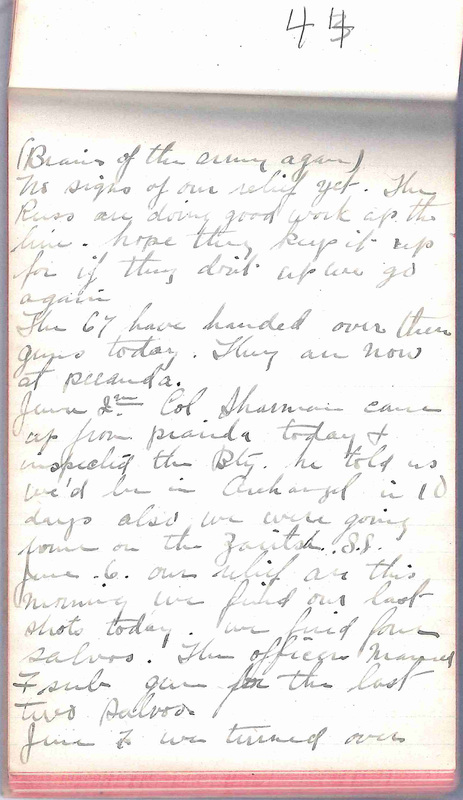 44
(Brains of the army again)
No signs of our relief yet. The
Russ are doing good work up the
line - hope they keep it up
for if they don't up we go
again
The 67 have handed over their
guns today. They are now
at pecanda.
June 2nd Col Sharman came
up from pianda today &
inspected the Bty. he told us
we'd be in Archangel in 10
days also we were going
home on the Zaritsa. S.S.
June 6. our relief are this
morning we fired our last
shots today. we fired four
salvos. The officers manned
F sub gun for the last
two salvos.
June 7 we turned over